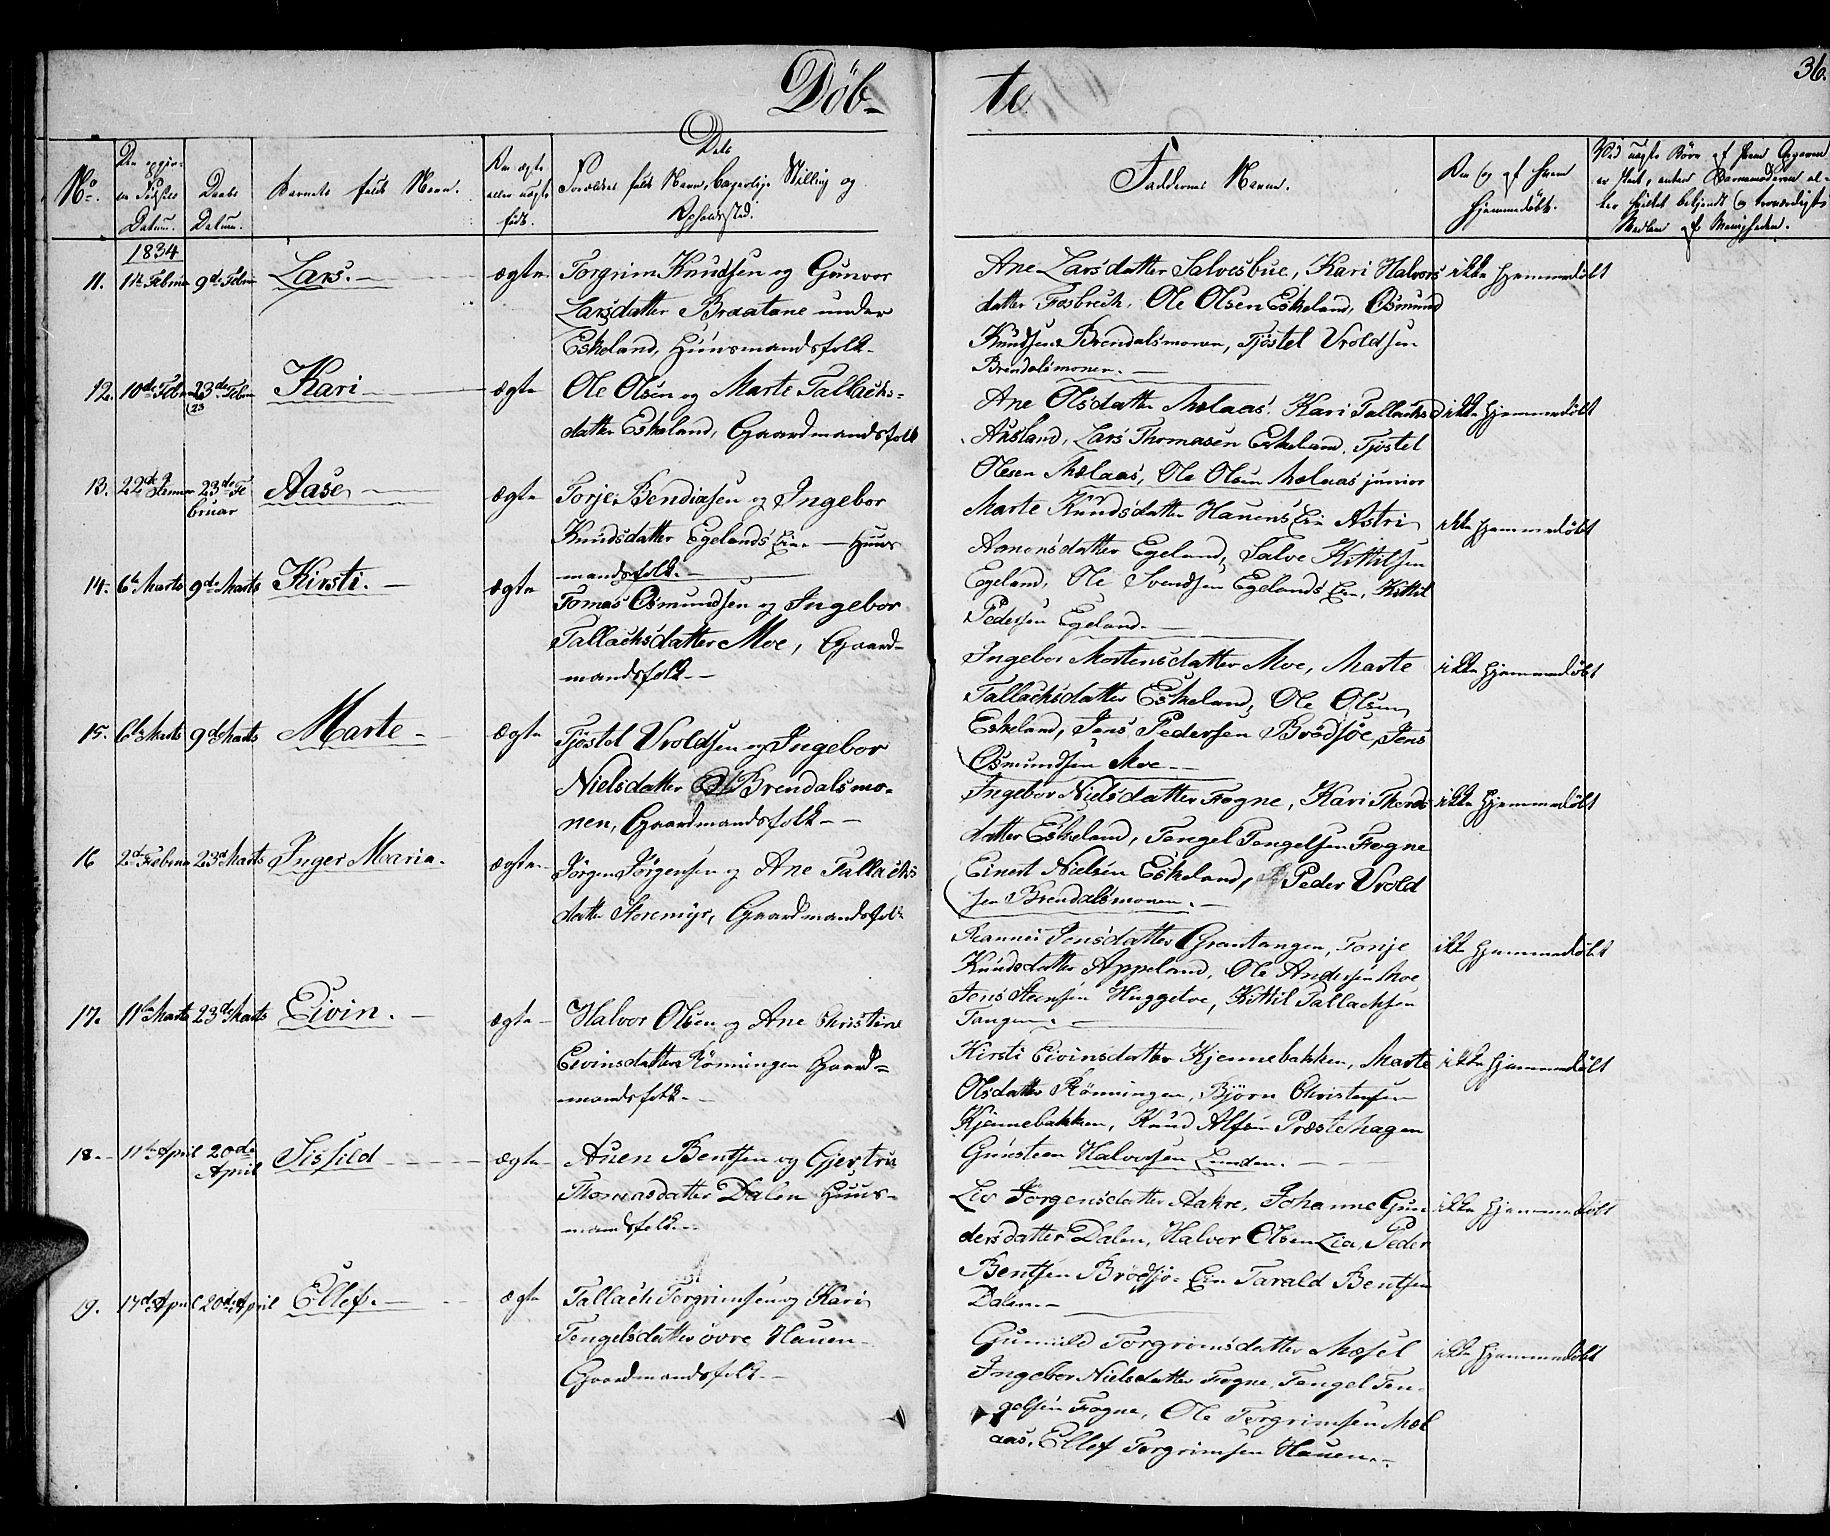 Döb-
te
36.
No.
Daabs Datum.
Barnets fulde Navn.
Forældres fulde Navn, borgerlige Stilling og
Opholdssted.
Faddernes Navne.
hjemmedöbt.
1834
11. 11te Februar 9de Februar Lars. ægte Torgrim Knudsen og Gunvor
Larsdatter Braatane under
Eskeland, Huusmandsfolk.
Ane Larsdatter Salvesbue, Kari Halvors
datter Fosbrech, Ole Olsen Eskeland, Osmund
Knudsen Brendalsmonen, Tjöstel Vroldsen
Brendalsmonen.
ikke hjemmedöbt
12. 10de Februar 23de Februar Kari ægte Ole Olsen og Marte Tallachs-
datter Eskeland, Gaardmandsfolk
Ane Olsdatter Mælaas, Kari Tallachsd
Aasland, Lars Thomasen Eskeland, Tjöstel
Olesen Mælaas, Ole Olsen Mælaas junior
ikke hjemmedöbt
13. 22de Januar 23de Fe
bruar
Aase ægte Torje Bendixsen og Ingebor
Knudsdatter Egelands Eie. Huus
mandsfolk.
Marte Knudsdatter Hauens Eie Astri
Aanensdatter Egeland, Salve Kittilsen
Egeland, Ole Svendsen Egelands Eie, Kittil
Pedersen Egeland.
ikke hjemmedöbt
14. 6te Marts 9de Marts Kirsti. ægte Tomas Osmundsen og Ingebor
Tallachsdatter Moe, Gaard-
mandsfolk.
Ingebor Mortensdatter Moe, Marte
Tallachsdatter Eskeland, Ole Olsen
Eskeland, Jens Pedersen Brödsjöe, Jens
Osmundsen Moe
ikke hjemmedöbt
15. 6te Marts 9de Marts Marte ægte Tjöstel Vroldsen og Ingebor
Nielsdatter Brendalsmo-
nen, Gaardmandsfolk
Ingebor Nielsdatter Fogne, Kari Thords
datter Eskeland, Tengel Tengelsen Fogne
Einert Nielsen Eskeland, Peder Vrold
sen Brendalsmonen.
ikke hjemmedöbt
16 2de Februar 23de Marts Inger Maria. ægte Jörgen Jörgensen og Ane Tallachs
datter Storemÿr, Gaardmandsfolk
Jensdatter Grantangen, Tonje
Knudsdatter Appeland, Ole Andersen Moe
Jens Steensen Huggetve, Kittil Tallachsen
Tangen.
ikke hjemmedöbt
17. 11te Marts 23de Marts Eivin. ægte Halvor Olsen og Ane Christine
Eivinsdatter Rönningen Gaard-
mandsfolk.
Kirsti Eivinsdatter Kjennebakken, Marte
Olsdatter Rönningen, Björn Christensen
Kjennebakken, Knud Alfsen Præstehagen
Gunsteen Halvorsen Lunden.
ikke hjemmedöbt
18. 11te April 20de
April
Sissild ægte Auen Bentsen og Gjertru
Thomasdatter Dalen Huus-
mandsfolk.
Liv Jörgensdatter Aakre, Johanne Gun
dersdatter Dalen, Halvor Olsen Lien, Peder
Bentsen Brödsjö Eie Tarald Bentsen
Dalen
ikke hjemmedöbt
19. 17de April 20de April Ellef. ægte Tallach Torgrimsen og Kari
Tengelsdatter övre Hauen
Gaardmandsfolk.
Gunnild Torgrimsdatter Mæsel
Ingebor Nielsdatter Fogne, Tengel Ten-
gelsen Fogne, Ole Torgrimsen Mæl
aas, Ellef Torgrimsen Hauen.
ikke hjemmedöbt